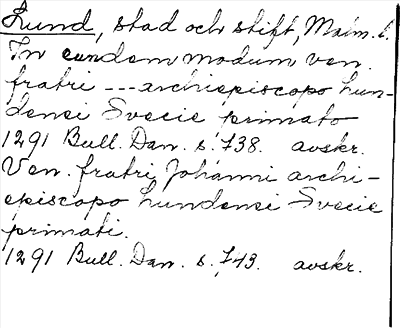 Lund, stad och stift, Malm. l.
In eundem modum ven.
fratri --- archiepiscopo Lun-
densi Svecie primato
1291 Bull. Dan. s. 738. avskr.
Ven. fratri Johanni archi-
episcopo Lundensi Svecie
primati.
1291 Bull. Dan. s. 743. avskr.